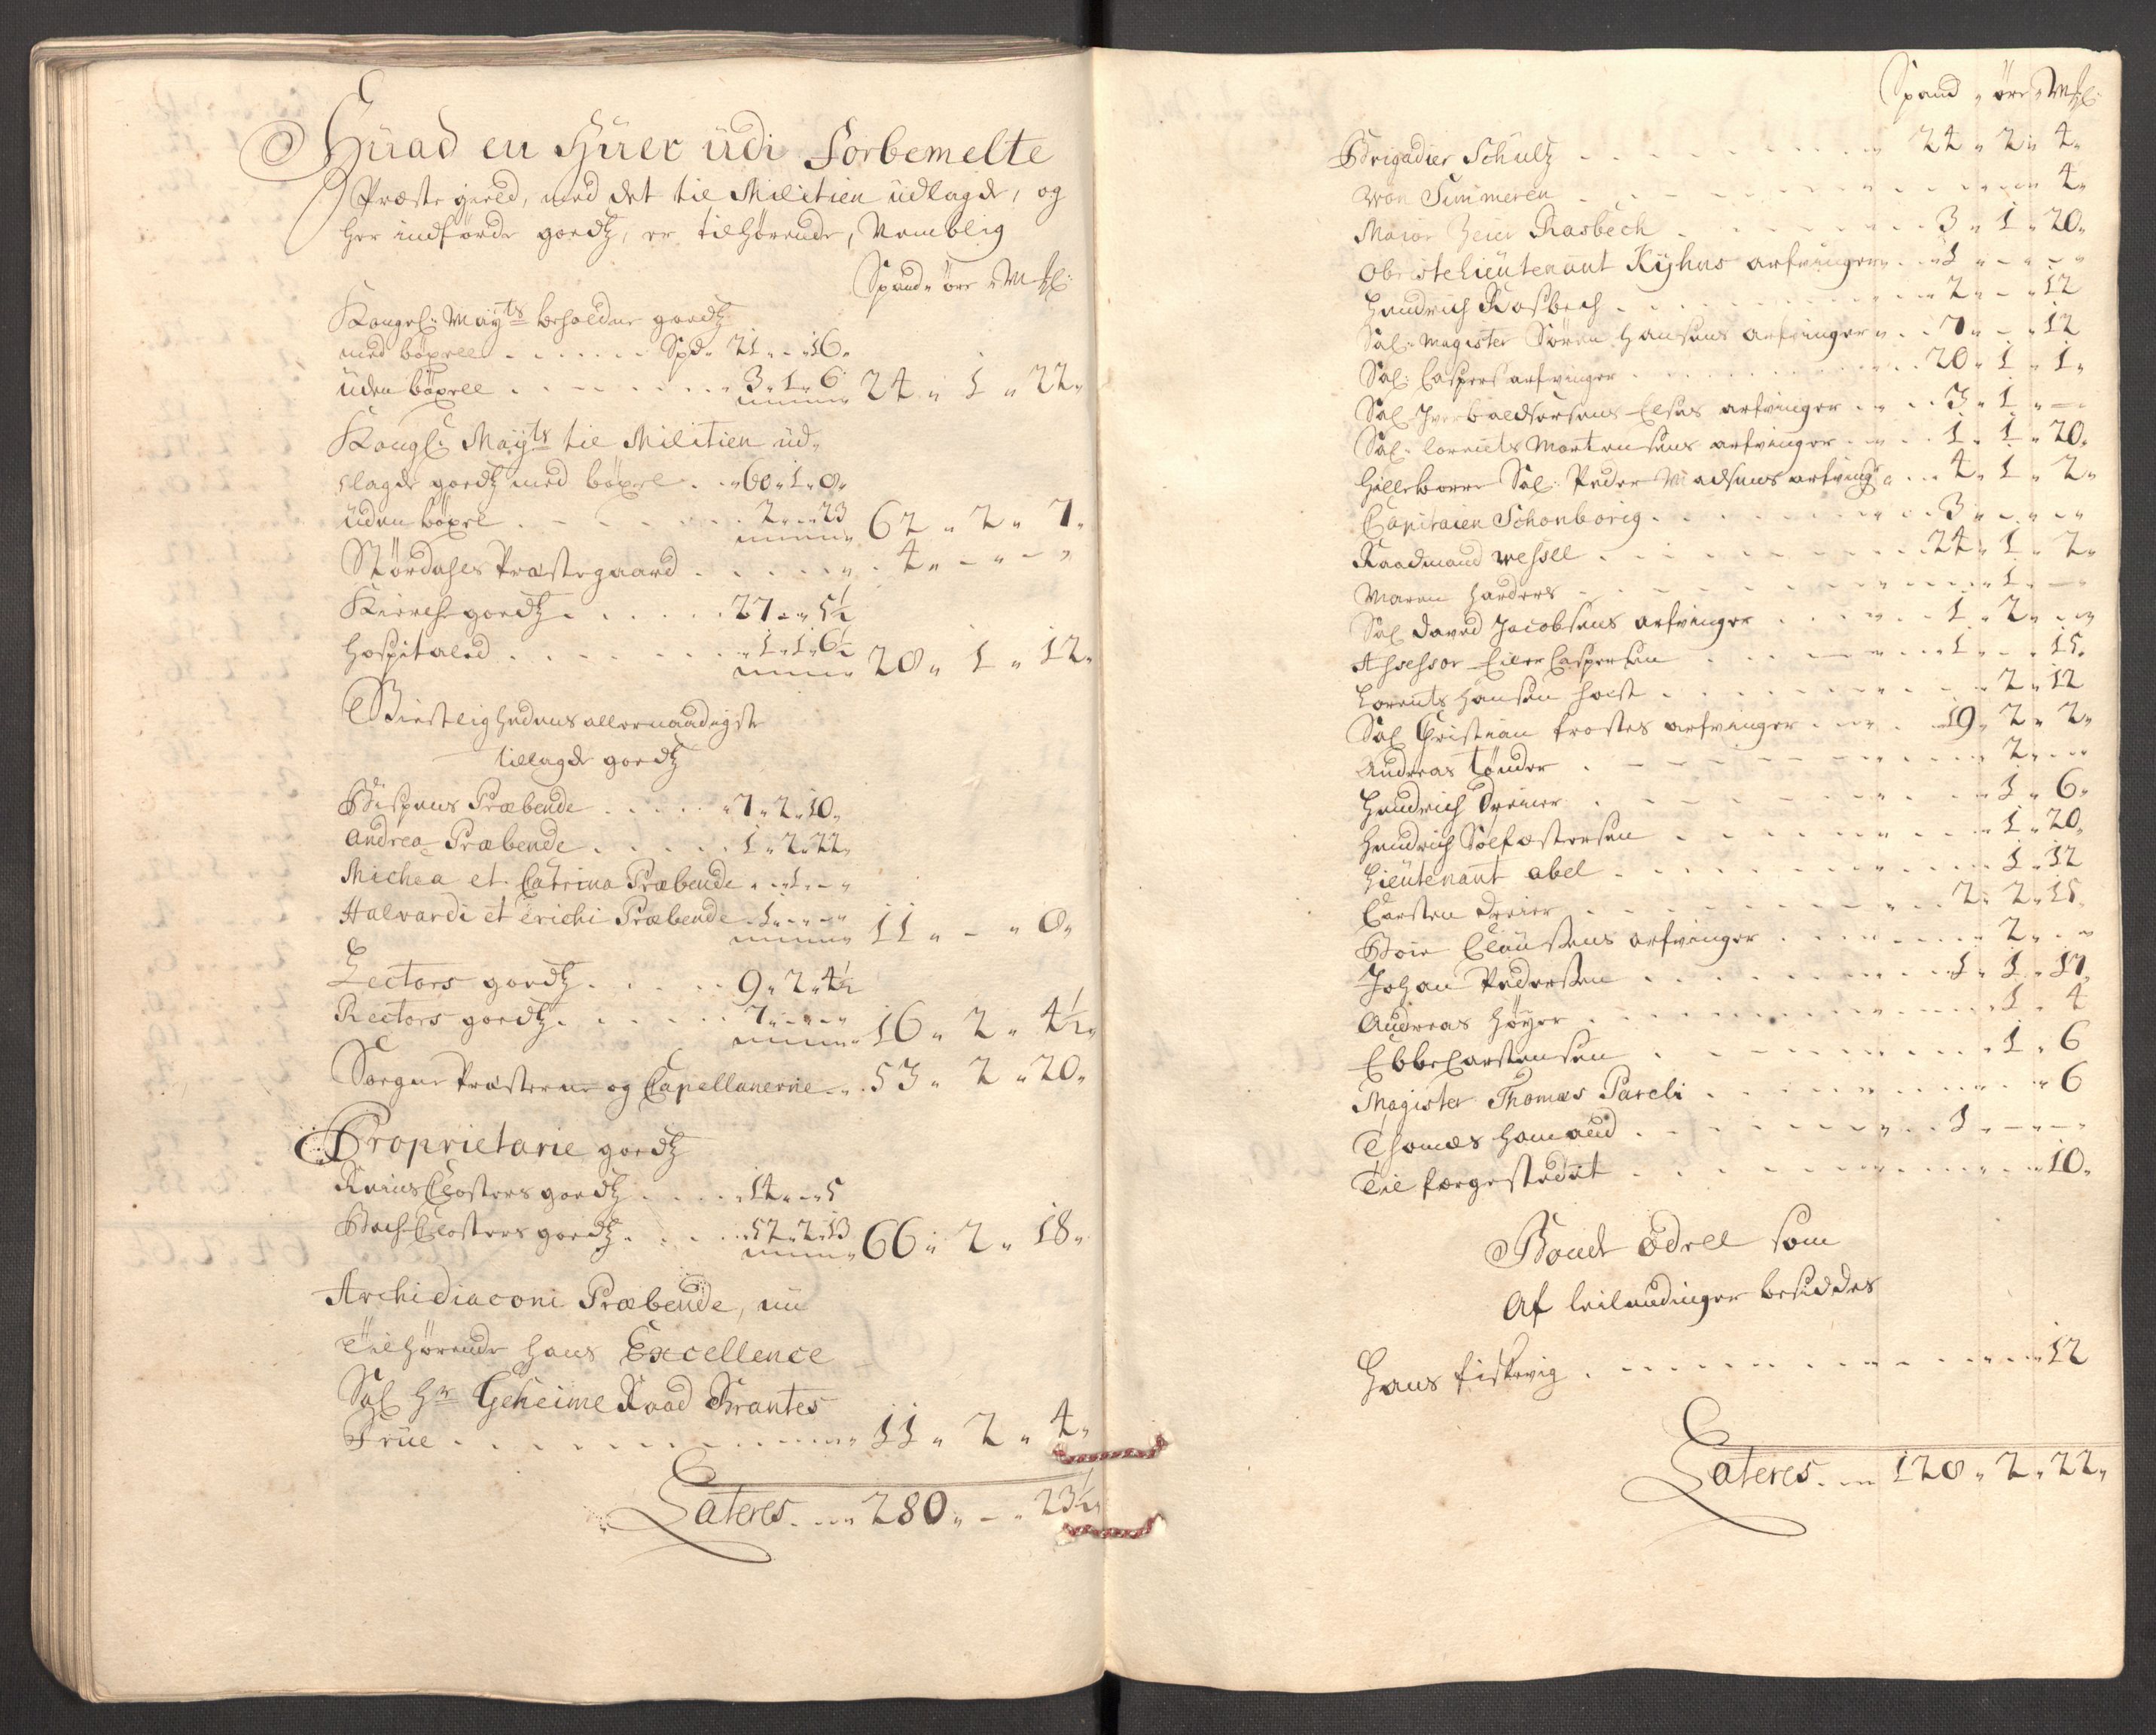 Huad en Huer udi Forbemelte
Præstegield, med det til Militien udlagde, og
her indførde goedtz, er tilhørende, Nemblig
Spand „ øre „ Mkl:
Kongel: Mayts beholdne goedtz
med böxell . . . . . . Spd„ 21 „ - „ 16 „
uden böxell . . . . . . „ 3 „ 1 „ 6 24 „ 1 „ 22 „
Kongl: Mayts til Militien ud„
lagde goedtz med böxel . . „ 60 „ 1 „ 8 „
uden böxel . . . . . . 2 „ - „ 23 62 „ 2 „ 7 „
Størdahls Præstegaard . . . . . „ . 4 „ - „ - „
Kirche goedtz . . . . . 27 „ - „ 5½
Hospitaled . . . . . . „ 1 „ 1 „ 6½ 28 „ 1 „ 12 „
Giestlighedens allernaadigste
tillagde goedtz
Bispens Præbende . . . . „ 7 „ 2 „ 10 „
Andrea Præbende . . . . . 1 „ 2 „ 22 „
Michea et Catrina Præbende „ - „ 1 „ - „
Halvardi et Erichi Præbende „ 1 „ - „ - „ 11 „ - „ 8 „
Lectors goedtz . . . . . 9 „ 2 „ 4½
Rectors goedtz . . . . . . 7 „ - „ - „ 16 „ 2 „ 4½ „
Sogne Præsterne og Capellanerne „ . 53 „ 2 „ 20 „
Proprietarie goedtz
Reins Closters goedtz . . . . „ 14 „ - „ 5
Bache Closters goedtz . . . . „ 52 „ 2 „ 13 66 „ 2 „ 18 „
Archidiaconi Præbende, nu
Tilhørende hans Excellence
Sal Hr Geheime Raad Brantes
Frue . . . . . . . . . . 11 „ 2 „ 4 „
Lateres . . . 280 „ - „ 23½ „
Spand „ öre „ Mkl:
Brigadier Schultz . . . . . . . . 24 „ 2 „ 4 „
Won Timmeren . . . . . . . . . . . 4 „
Maior Heier Rasbech . . . . . . . 3 „ 1 „ 20 „
ObersteliEutenant Kyhns arfvinger „ . . „ 1 „ - „ - „
Hendrich Rosbech . . . . . . . . . 2 „ - „ 12
Sal: Magister Søren Hansens arfvinger „ . . 7 „ - „ 12
Sal: Caspers arfvinger . . . . . . . 20 „ 1 „ 1 „
Sal Iver baldsersens Elses arfvinger . . „ . . 3 „ 1 „ -
Sal: lorents Mortensens arfvinger . . „ . . 1 „ 1 „ 20 „
Hilleborre Sal: Peder Madsens arfving: „ . . . 4 „ 1 „ 2 „
Capitaien Schonborig . . . . . . . . 3 „ - „ - „
Raadmand Wessel . . . . . . . . . 24 „ 1 „ 2 „
Maren Harders . . . . . . . . . . 1 „ -
Sal David Jacobsens arfvinger . . . . . . 1 „ 2 „ -
Assessor Eiler Caspersen . . . . . . . 1 „ - „ 15 „
Lorents Hansen Holst . . . . . . . . 2 „ 12
Sal Christian frostes arfvinger . . . „ . 19 „ 2 „ 2 „
Andreas Tønder . . . . . . . . . . 2 „ -
Hendrich Dreier . . . . . . . . . 1 „ 6 „
Hendrich Sølfæstersen . . . . . . . . 1 „ 20 „
Lieutenant abel . . . . . . . . . 1 „ 12
Carsten Dreier . . . . . . . . 2 „ 2 „ 15
Boie Clausens arfvinger . . . . . . . 2 „ -
Johan Pedersen . . . . . . . . 1 „ 1 „ 17 „
Andreas Høyer . . . . . . . . . . 1 „ 4
Ebbe Carstensen . . . . . . . . . 1 „ 6
Magister Thomas Pareli . . . . . . . . „ 6
Thomas Hamand . . . . . . . . . 1 „ - „ -
Til færgestædet . . . . . . . . . . 10 „
Bonde Odell som
Af leilendinger besiddes
Hans fiskvig . . . . . . . . . . . 12
Lateres . . 128 „ 2 „ 22 „